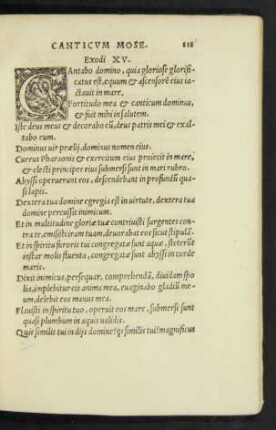 CANTICVM MOSE. 818
Exodi XV.
CAntabo domino, quia gloriose glorifi-
catus est, equum & ascensorē eius ia-
ctauit in mare,
Fortitudo mea & canticum dominus,
& fuit mihi in salutem.
Iste deus meus & decorabo eū, deus patris mei & exal-
tabo eum.
Dominus uir prælij, dominus nomen eius.
Currus Pharaonis & exercitum eius proiecit in mare,
& electi principes eius submersi sunt in mari rubro.
Abyssi operuerunt eos, descendebant in profundū qua-
si lapis.
Dextera tua domine egregia est in uirtute, dextera tua
domine percussit inimicum.
Et in multitudine gloriæ tuæ contriuisti surgentes con-
tra te, emisisti iram tuam, deuorabat eos sicut stipulā.
Et in spiritu furoris tui congregatæ sunt aquæ, steterūt
instar molis fluenta, congregatæ sunt abyssi in corde
maris.
Dixit inimicus, persequar, comprehendā, diuidam spo-
lia, implebitur eis anima mea, euaginabo gladiū me-
um, delebit eos manus mea.
Flauisti in spiritu tuo, operuit eos mare, submersi sunt
quasi plumbum in aquis ualidis.
Quis similis tui in dijs domine? qs similis tui? magnificus